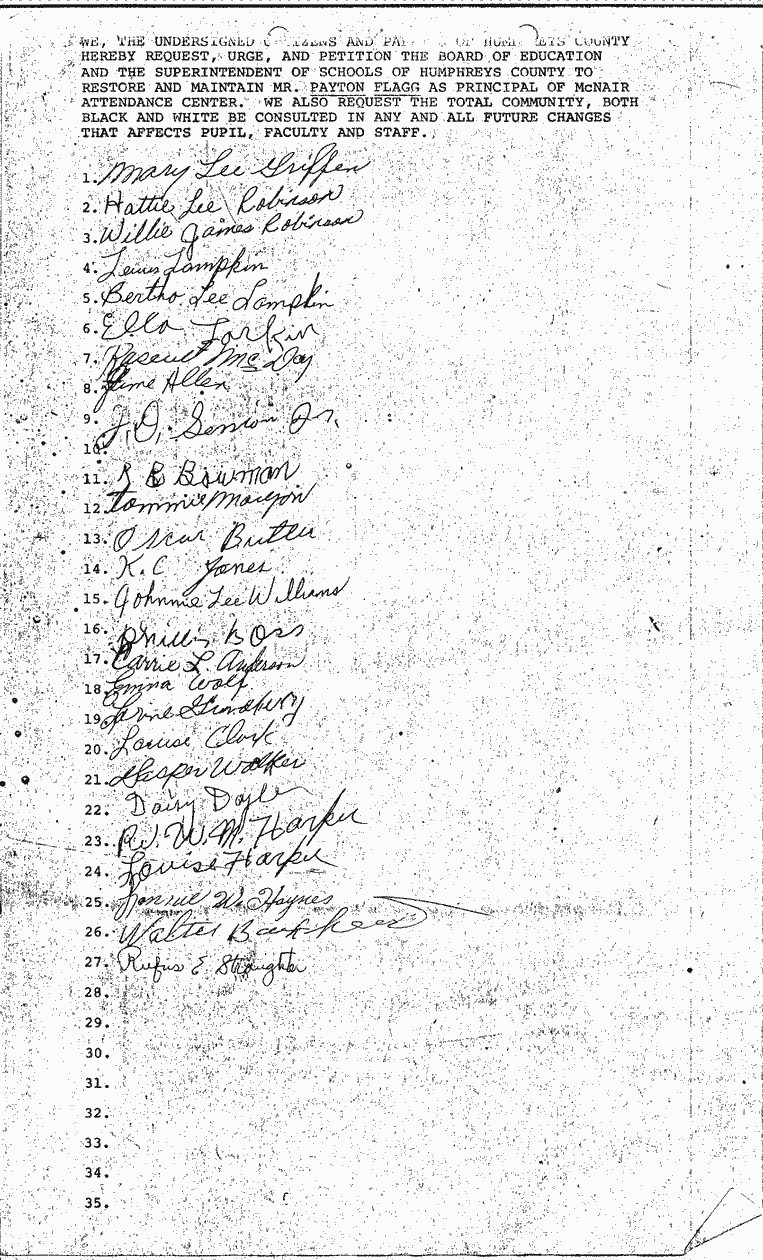 WE, THE UNDERSIGNED CITIZENS AND OF HUMPHREYS COUNTY
HEREBY REQUEST, URGE, AND PETITION THE BOARD OF EDUCATION
AND THE SUPERINTENDENT OF SCHOOLS OF HUMPHREYS COUNTY TO
RESTORE AND MAINTAIN MR. PAYTON FLAGG AS PRINCIPAL OF McNAIR
ATTENDANCE CENTER. WE ALSO REQUEST THE TOTAL COMMUNITY, BOTH
BLACK AND WHITE BE CONSULTED IN ANY AND ALL FUTURE CHANGES
THAT AFFECTS PUPIL, FACULTY AND STAFF.
1. Mary Lee Griffen
2. Hattie Lee Robinson
3. Willie James Robinson
4. Lewis Lampkin
5. Bertho Lee Lampkin
6. Ella Larkin
7. McDay
8. Allen
9. J.O. Senior Jr.
10.
11. Bowman
12. Tommie
13. Oscar Butler
14. K.C Jones
15. Johnnie Lee Williams
16. Ross
17. Carrie L. Anderson
18. Emma Wolf
19.
20. Louise Clark
21. Walker
22. Daisy Doyle
23. Rev. W.M. Harper
24. Louise Harper
25. W. Haynes
26. Walter
27. Rufus E Straughter
28.
29.
30.
31.
32.
33.
34.
35.